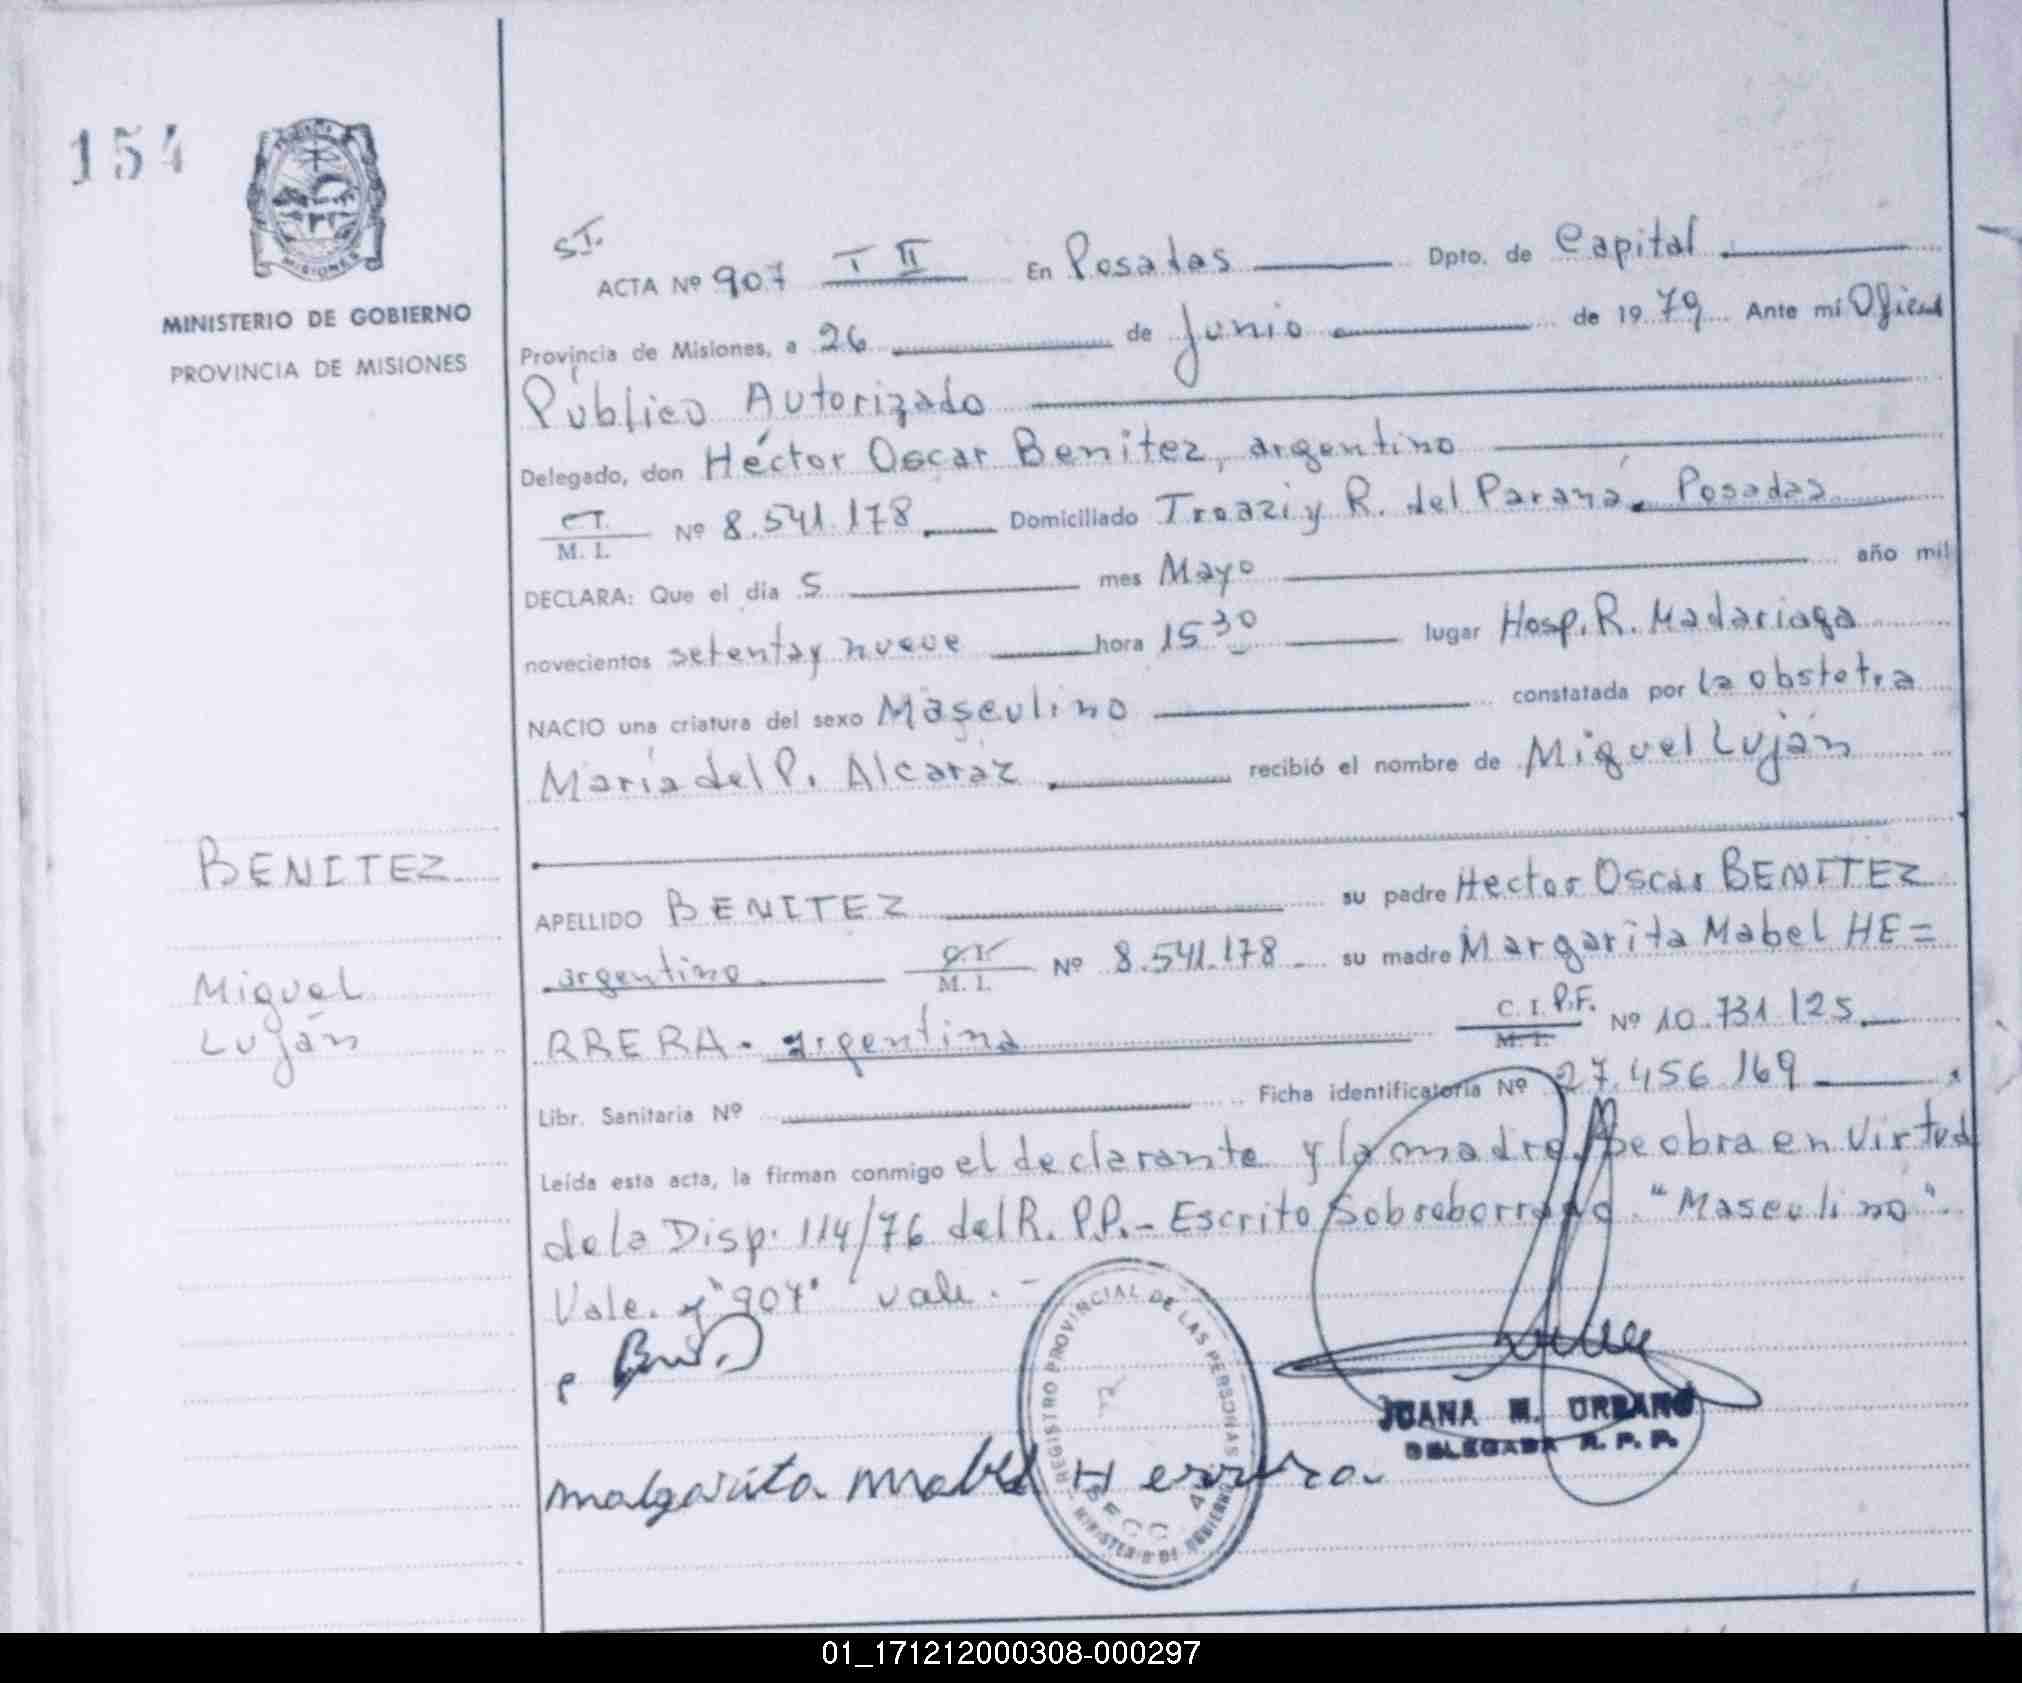 154
MISIONES
MINISTERIO DE GOBIERNO
PROVINCIA DE MISIONES
S.I.
ACTA Nº 907 T II En Posadas Dpto. de Capital
Provincia de Misiones, a 26 de Junio de 1979 Ante mí Oficial
Público Autorizado
Delegado, don Héctor Oscar Benitez, argentino
M. I. Nº 8.541.178 Domiciliado Troazi y R. del Paraná. Posadas
DECLARA: Que el día 5 mes Mayo año mil
novecientos setenta y nueve hora 15 30 lugar Hosp. R. Madariaga
NACIO una criatura del sexo Masculino constatada por la obstetra
María del P. Alcaraz recibió el nombre de Miguel Luján
BENITEZ
APELLIDO BENITEZ su padre Hector Oscar BENITEZ
argentino C.I. M. I. Nº 8.541.178 su madre Margarita Mabel HE=
Miguel
Luján
RRERA. argentina C. I. P.F. M. I. Nº 10.731.125
Libr. Sanitaria Nº Ficha identificatoria Nº 27.456.169
Leída esta acta, la firman conmigo el declarante y la madre. Se obra en virtud
de la Disp. 114/76 del R. P.P.- Escrito Sobreborrado "Masculino".
Vale. y "907" vale. -
malgarita mabel Herrera.
REGISTRO PROVINCIAL DE LAS PERSONAS
MINISTERIO DE GOBIERNO
JUANA M. URBANO
DELEGADA R. P. P.
01_171212000308-000297